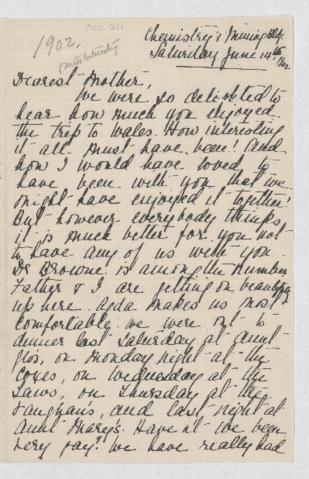 1902.
Chemistry & Mining Bldg.
Saturday June 14th
Dearest Mother,
We were so delighted to
hear how much you enjoyed
the trip to Wales. How interesting
it all must have been! and
how I would have loved to
have been with you that we
might have enjoyed it together!
But however everybody thinks
it is much better for you not
to have any of us with you
Dr Browne is among the number
Father & I are getting on beautifully
up here. Ada makes us most
comfortable. We were out to
dinner last Saturday at Aunt
Glos', on Monday night at the
Coxes, on Wednesday at the
Laws, on Thursday at the
Vaughans, and last night at
Aunt Mary's. Haven't we been
very gay? We have really had